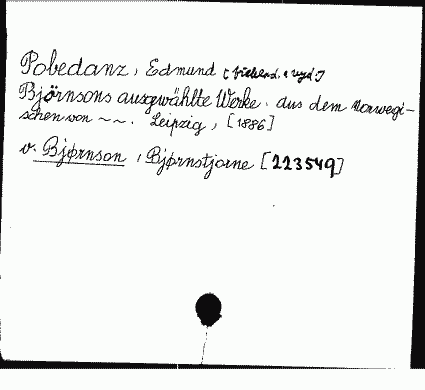 Pobedanz, Edmund
Björnsons ausgewählte Werke. aus dem Norwegi-
schen von ~ ~. Leipzig, [1886]
v. Bjørnson, Bjørnstjerne [223549]